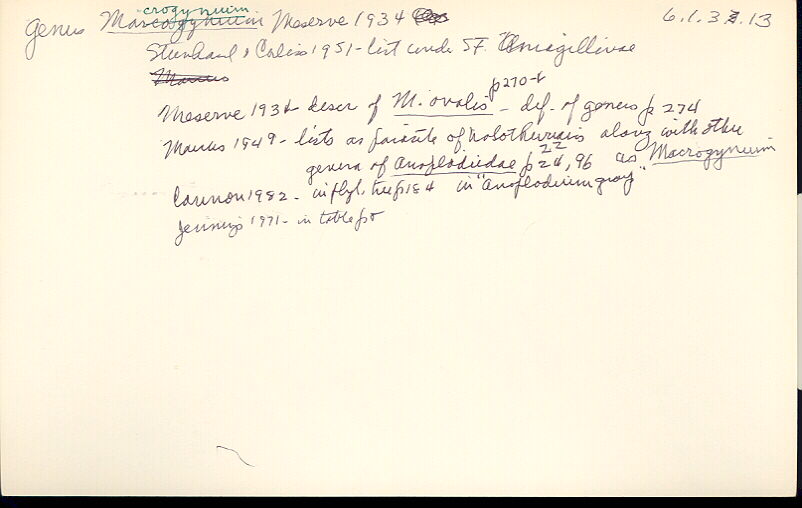 crogynuim
Genus Marcogynium Meserve 1934 6.1.3.13
Stunkard & Corliss 1951 - list under SF.
Marcus
p270-
Meserve 1934 descr of M. ovalis - def. of genus p 274
Marcus 1949 - lists as parasite of holothurians along with other
22
genera of Anoplodiidae p 24, 96 as Macrogyneium
Cannon 1982 - in phyl. tree p184 in "Anoplodium group"
Jennings 1971 - in table p